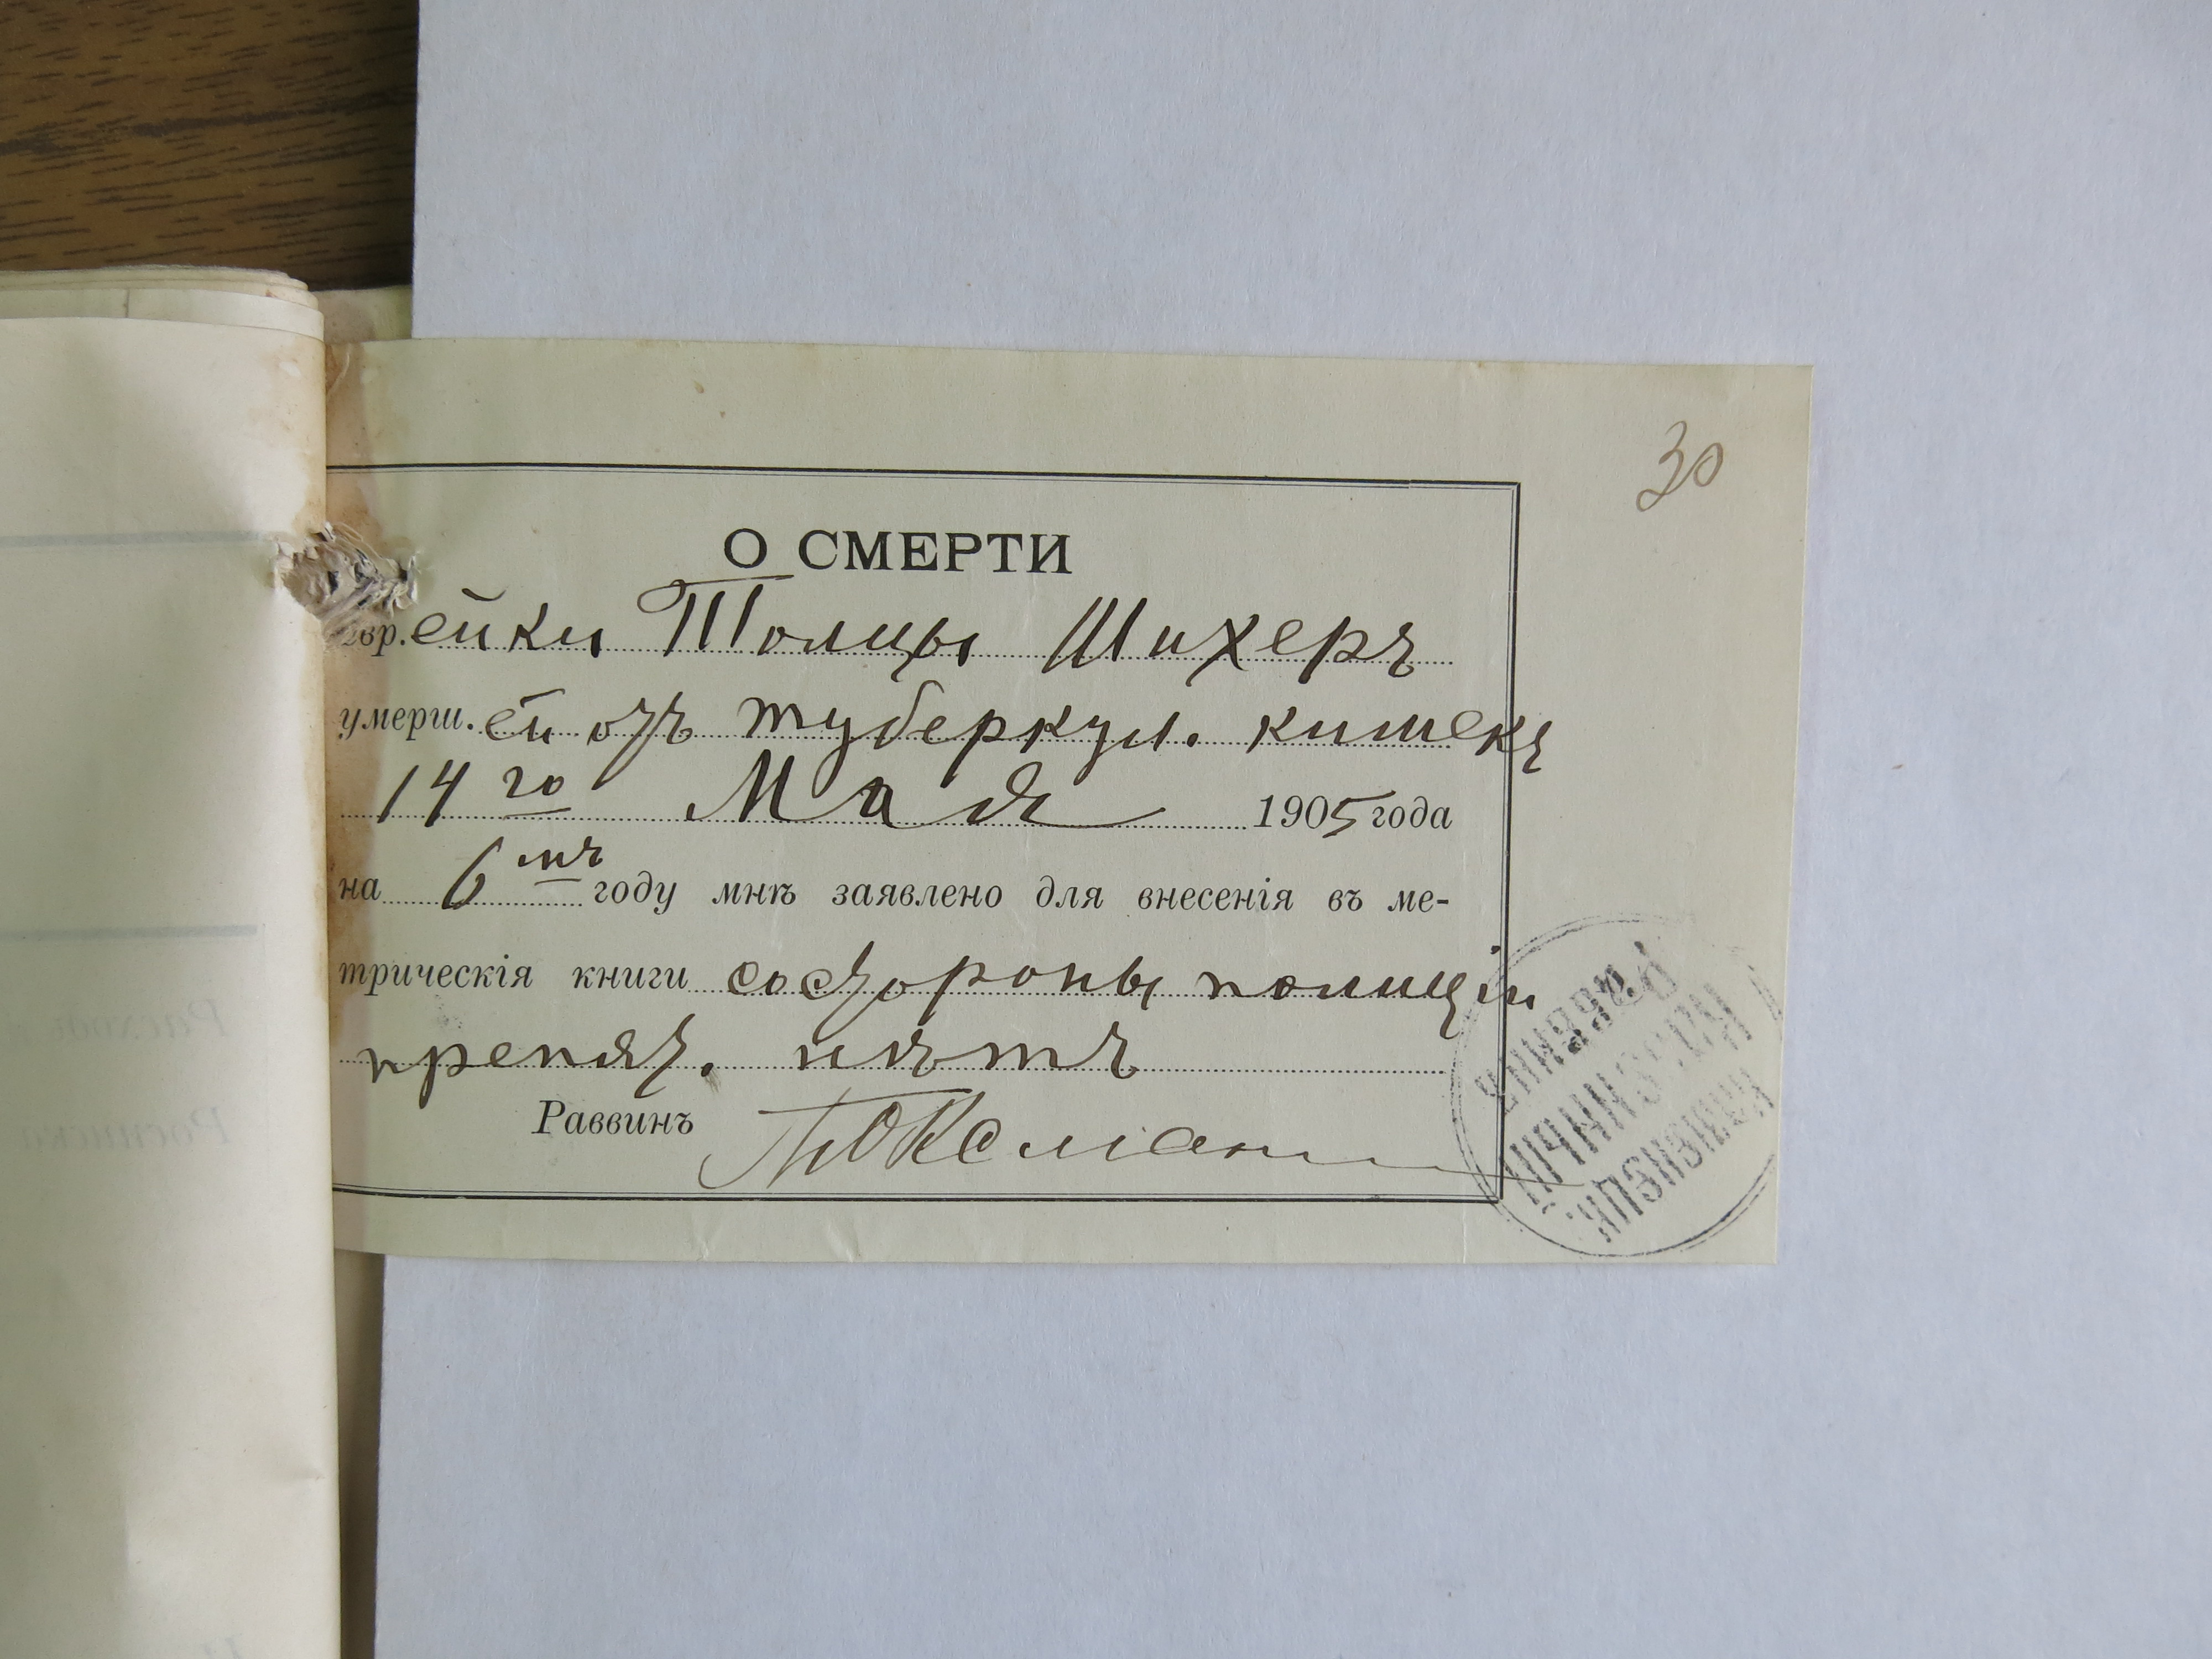 30
О СМЕРТИ
евр.ейки Толцы Шихеръ
умерш.ей отъ туберкул. кишекъ
14го Мая 1905 года
на 6мъ году мнѣ заявлено для внесенія въ ме-
трическія книги со стороны полиціи
препят. нѣтъ
Раввинъ
РАВВИНЪ
КАЗЕННЫЙ
Расходъ
Росписка